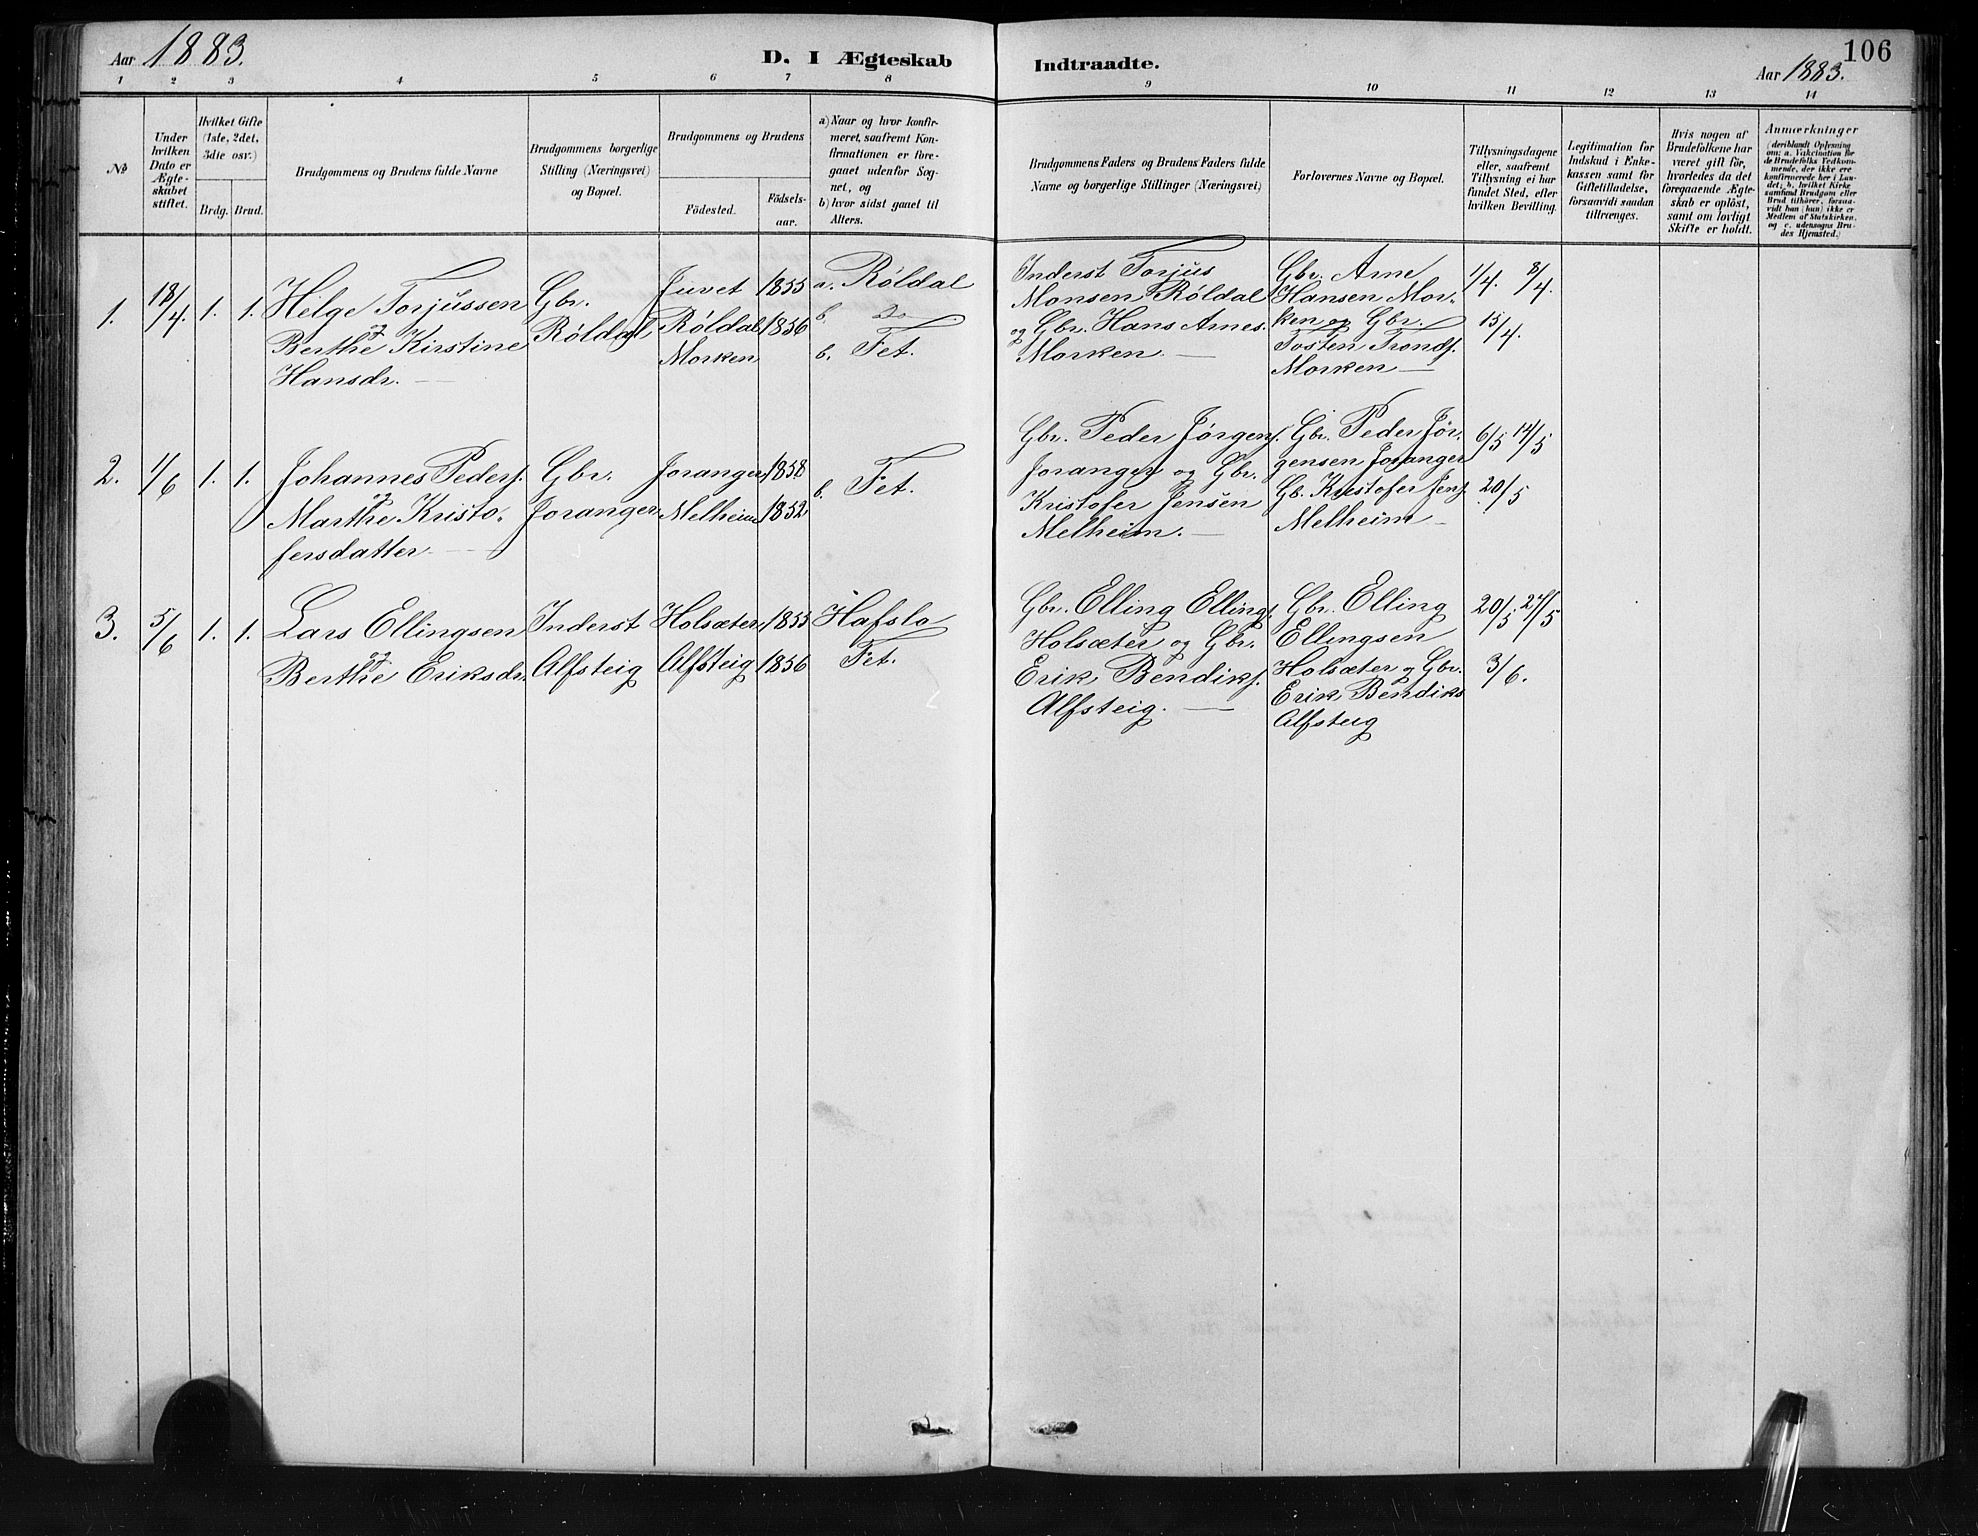 Aar 1883.
D. I Ægteskab
Indtraadte.
106
Aar 1883.
1 2 3 4 5 6 7 8 9 10 11 12 13 14
No
Under hvilken Dato er Ægteskabet stiftet.
Hvilket Gifte (1ste, 2det, 3die osv.)
Brdg. Brud.
Brudgommens og Brudens fulde Navne
Brudgommens borgerlige Stilling (Næringsvei) og Bopæl.
Brudgommens og Brudens
Födested.
Födselsaar.
a) Naar og hvor konfirmeret, saafremt Konfirmationen er foregaaet udenfor Sognet, og
b) hvor sidst gaaet til Alters.
Brudgommens Faders og Brudens Faders fulde Navne og borgerlige Stillinger (Næringsvei)
Forlovernes Navne og Bopæl.
Tillysningsdagene eller, saafremt Tillysning ei har fundet Sted, efter hvilken Bevilling.
Legitimation for Indskud i Enkekassen samt for Giftetilladelse, forsaavidt saadan tiltrænges.
Hvis nogen af Brudefolkene har været gift för, hvorledes da det foregaaende Ægteskab er oplöst, samt om lovligt Skifte er holdt.
Anmærkninger (deriblandt Oplysning om: a. Vakcination for de Brudefolks Vedkommende, der ikke ere konfirmerede her i Landet; b. hvilket Kirkesamfund Brudgom eller Brud tilhörer, forsaavidt han (hun) ikke er Medlem af Statskirken, og c. udensogns Brudes Hjemsted.)
1. 18/4 1. 1.
Helge Torjussen
og
Berthe Kirstine
Hansdr.
Gbr.
Röldal
Juvet
Röldal
Morken
1855
1856
a. Röldal
b. Do
b. Fet.
Inderst Torjus
Monsen Röldal
og Gbr. Hans Arnes.
Morken.
Gbr. Arne
Hansen Mor-
ken og Gbr.
Tosten Tronds.
Morken
1/4. 8/4.
15/4.
2. 1/6 1. 1.
Johannes Peders.
og
Marthe Kristo-
fersdatter
Gbr.
Joranger
Joranger
Melheim
1858
1852
b. Fet.
Gbr. Peder Jörgens.
Joranger og Gbr.
Kristofer Jensen
Melheim.
Gbr. Peder Jör-
gensen Joranger
Gb. Kristofer Jens.
Melheim
6/5 14/5
20/5
3. 5/6 1. 1.
Lars Ellingsen
og
Berthe Eriksdr.
Inderst
Alfsteig
Holsæter
Alfsteig
1855
1856
Hafslo
Fet.
Gbr. Elling Ellings.
Holsæter og Gbr.
Erik Bendiks.
Alfsteig.
Gbr. Elling
Ellingsen
Holsæter og Gbr.
Erik Bendiks
Alfsteig
20/5. 27/5
3/6.